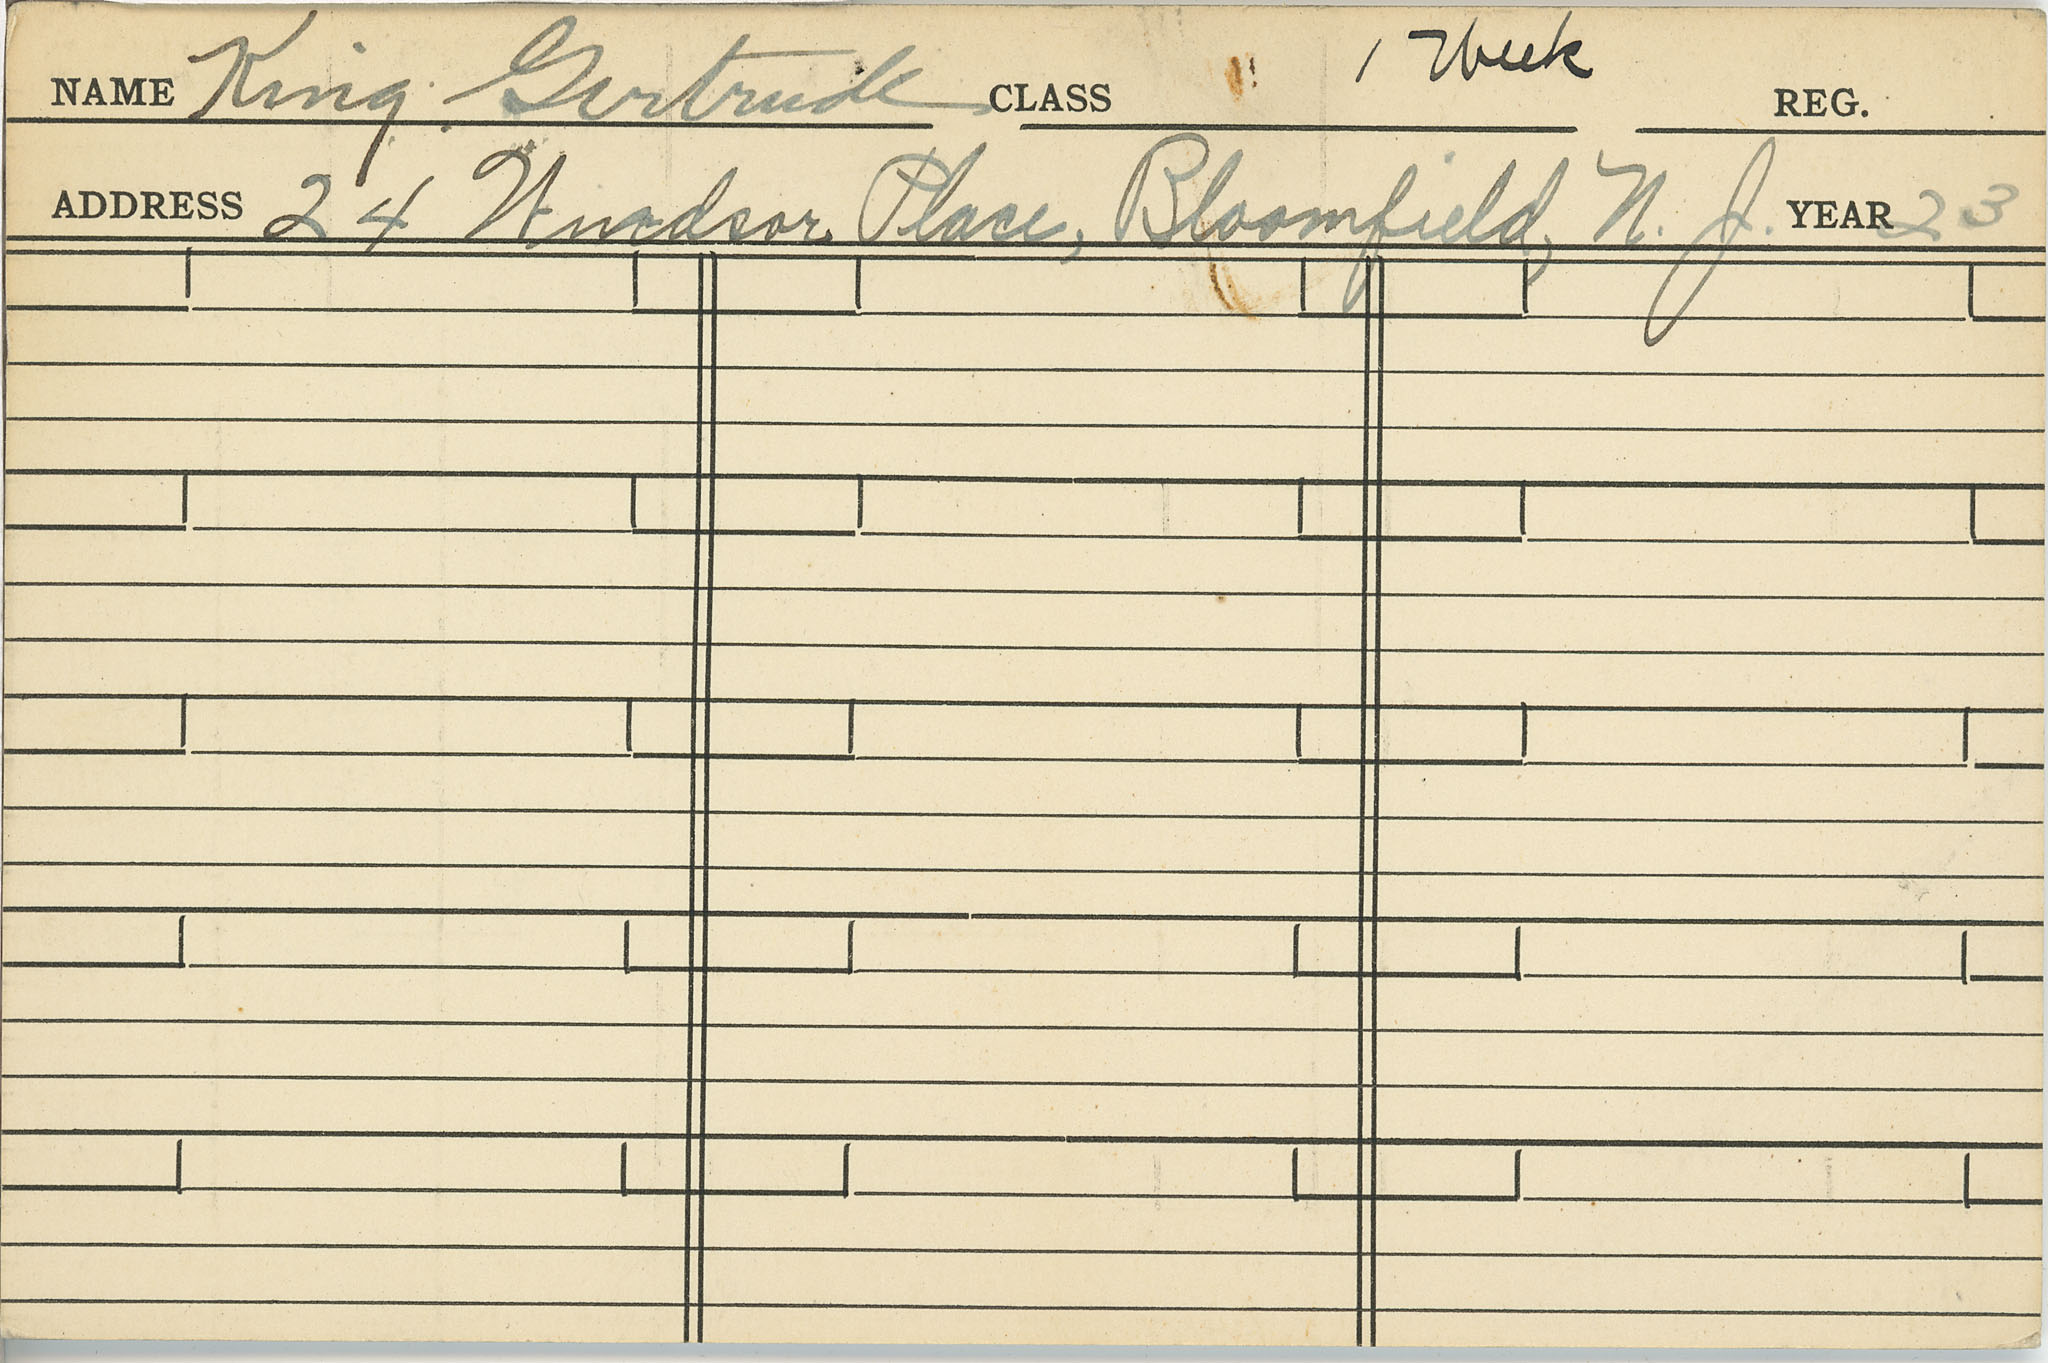 NAME King, Gertrude CLASS 1 Week REG.
ADDRESS 24 Windsor Place, Bloomfield, N. J. YEAR 23